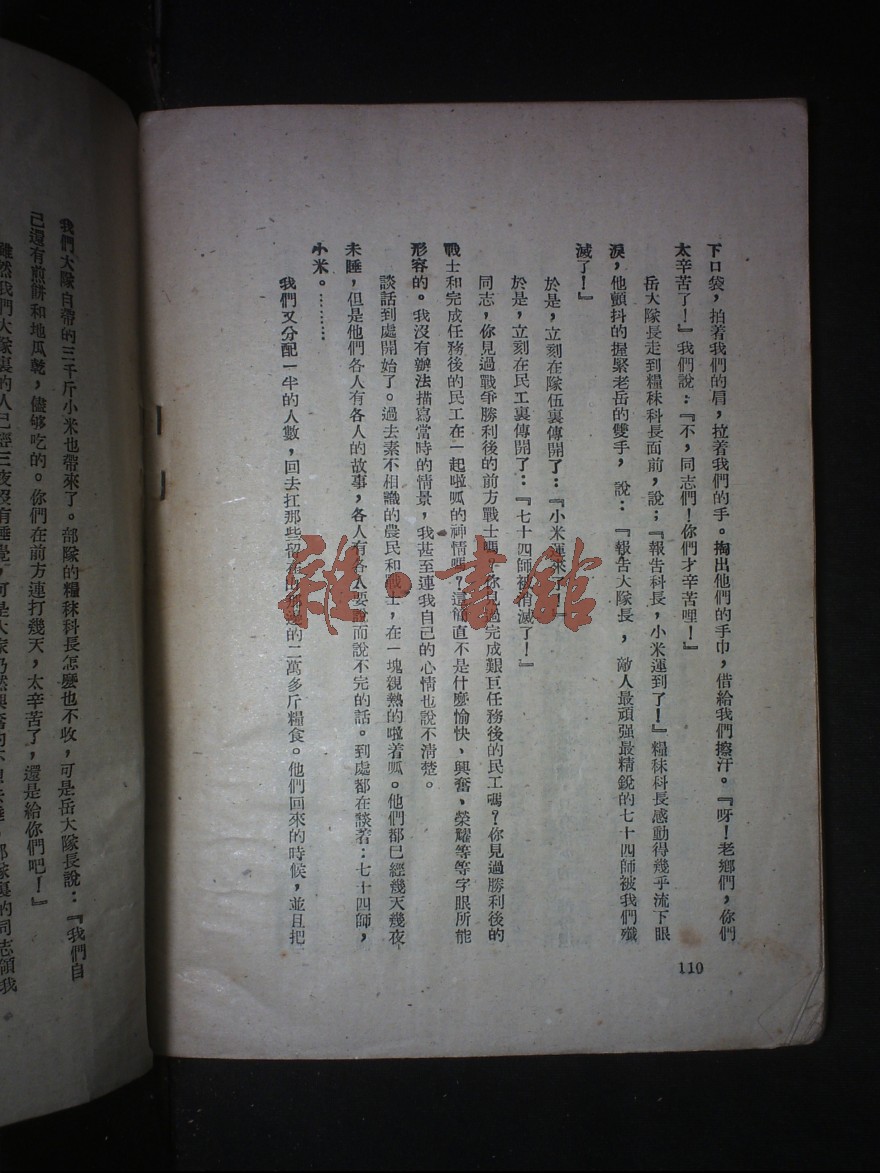 下口袋，拍着我們的肩，拉着我們的手。掏出他們的手巾，借給我們擦汗。『呀！老鄉們，你們
太辛苦了！』我們說：『不，同志們！你們才辛苦哩！』
岳大隊長走到糧秣科長面前，說；『報告科長，小米運到了！』糧秣科長感動得幾乎流下眼
淚，他顫抖的握緊老岳的雙手，說：『報告大隊長，敵人最頑强最精銳的七十四師被我們殲
滅了！』
於是，立刻在隊伍裏傳開了：『小米運來了！』
於是，立刻在民工裏傳開了：『七十四師被消滅了！』
同志，你見過戰爭勝利後的前方戰士嗎？你見過完成艱巨任務後的民工嗎？你見過勝利後的
戰士和完成任務後的民工在一起啦呱的神情嗎？這簡直不是什麼愉快、興奮、榮耀等等字眼所能
形容的。我沒有辦法描寫當時的情景，我甚至連我自己的心情也說不清楚。
談話到處開始了。過去素不相識的農民和戰士，在一塊親熱的啦着呱。他們都巳經幾天幾夜
未睡，但是他們各人有各人的故事，各人有各人要說而說不完的話。到處都在談著：七十四師，
小米。………
我們又分配一半的人數，回去扛那些留在的二萬多斤糧食。他們回來的時候，並且把
110
我們大隊自帶的三千斤小米也帶來了。部隊的糧秣科長怎麽也不收，可是岳大隊長說：『我們自
己還有煎餅和地瓜乾，儘够吃的。你們在前方連打幾天，太辛苦了，還是給你們吧！』
雖然我們大隊裏的人已經三夜沒有睡覺，可是大家仍然興奮的不想去睡，部隊裏的同志領我
雅·書館